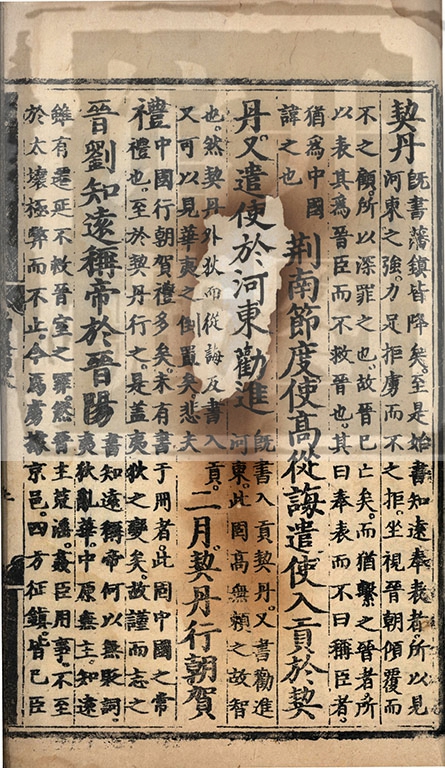 契丹
既書藩鎮皆降矣。至是始書知遠奉表者。所以見
河東之強。力足拒虜而不之拒。坐視晉朝傾覆而
不之顧。所以深罪之也。故晉已亡矣。而猶繫之晉者。所
以表其爲晉臣而不救晉也。其曰奉表而不曰稱臣者。
猶爲中國
諱之也
荆南節度使高從誨遣使入貢於契
丹。又遣使於河東勸進
既書入貢契丹。又書勸進
河東。此固高無賴之故智
也。然契丹外狄而從誨反書入貢。
又可以見華夷之倒置矣。悲夫
二月。契丹行朝賀
禮
中國行朝賀禮多矣。未有書于冊者。此固中國之常
禮也。至於契丹行之。是蓋夷狄之變矣。故謹而志之
晉劉知遠稱帝於晉陽
書知遠稱帝。何以無貶詞。
夷狄亂華。中原無主。知遠
雖有遷延不救晉室之罪。然晉主荒淫。臣用事。不至
於太壞極弊而不止。今爲虜據京邑。四方征鎮。皆已臣